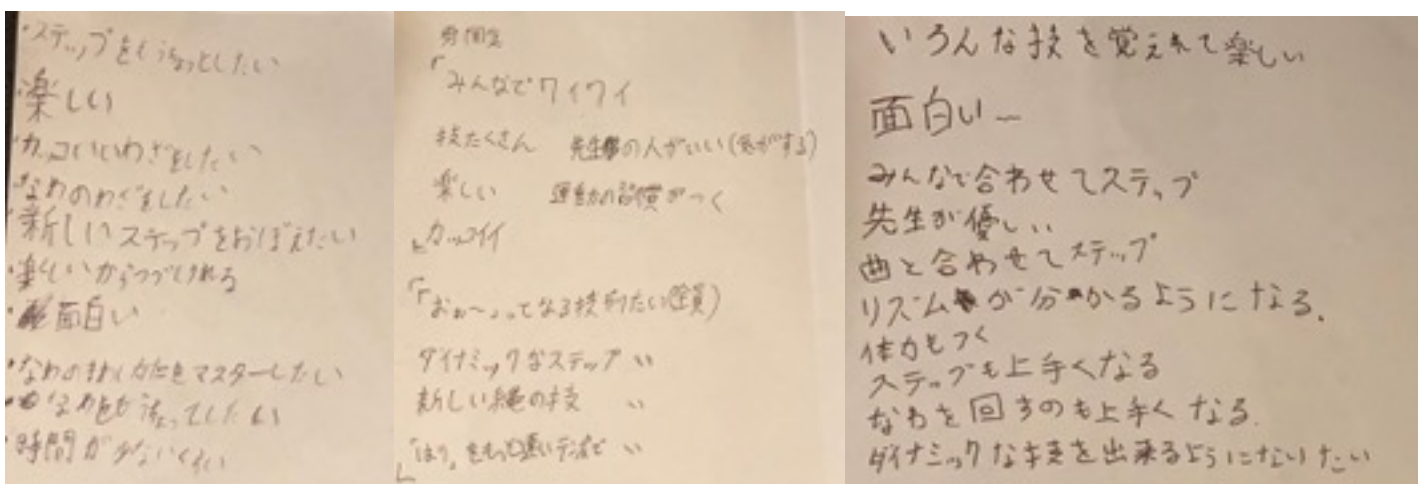 ・ステップをもうちょっとしたい
・楽しい
・カッコいいわざをしたい
・なわのわざをしたい
・新しいステップをおぼえたい
・楽しいからつづけれる
・面白い
・なわのまわしかたをマスターしたい
・なわをもってしたい
・時間が少ないくらい
「みんなでワイワイ
技たくさん 先生の人がいい(気がする)
楽しい 運動の習慣がつく
カッコイイ
「おぉ〜ってなる技やりたい(全員)
ダイナミックなステップ 〃
新しい縄の技 〃
「はっ」をもっと速いテンポで 〃
いろんな技を覚えれて楽しい
面白い〜
みんなで合わせてステップ
先生が優しい
曲と合わせてステップ
リズムが分かるようになる.
体力もつく
ステップも上手くなる
なわを回すのも上手くなる.
ダイナミックな技を出来るようになりたい